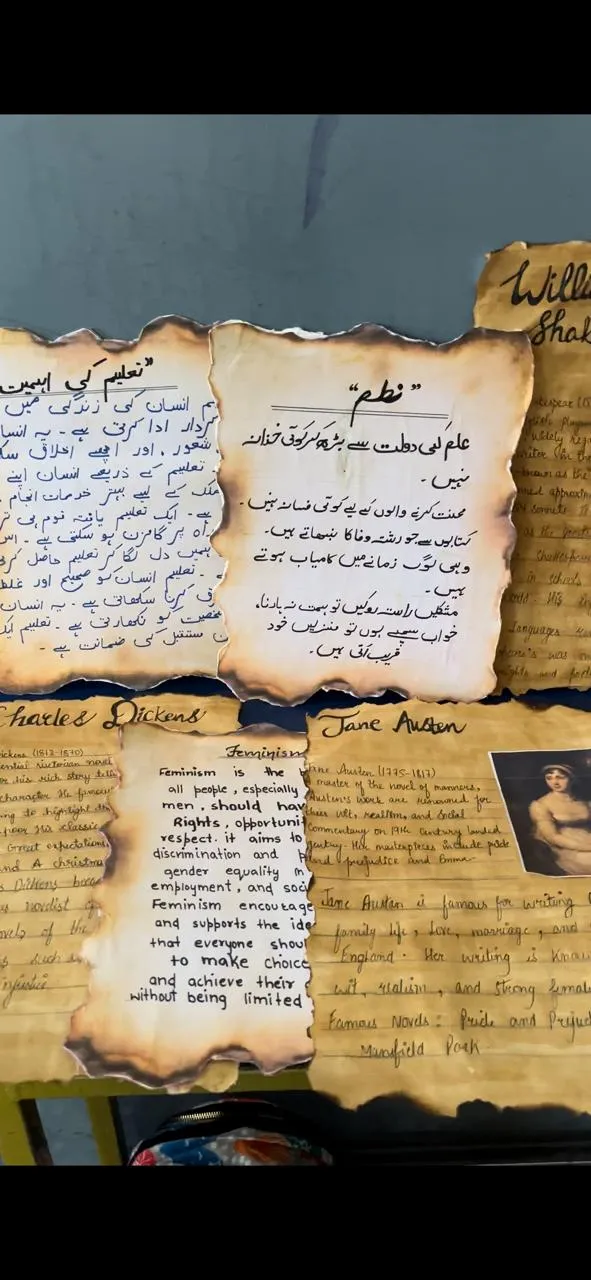 "تعلیم کی اہمیت
انسان کی زندگی میں
کردار ادا کرتی ہے۔ یہ انسا
شعور، اور اچھے اخلاق سک
تعلیم کے ذریعے انسان اپنے
ملک کے لیے بہتر خدمات انجام
ہے۔ ایک تعلیم یافتہ قوم ہی تر
راہ پر گامزن ہو سکتی ہے۔ اس
ہمیں دل لگا کر تعلیم حاصل کرنی
۔ تعلیم انسان کو صحیح اور غلط
فرق کرنا سکھاتی ہے۔ یہ انسان
شخصیت کو نکھارتی ہے۔ تعلیم ایک
مستقبل کی ضمانت ہے۔
"نظم"
علم کی دولت سے بڑھ کر کوئی خزانہ
نہیں۔
محنت کرنے والوں کے لیے کوئی فسانہ نہیں۔
کتابوں سے جو رشتہ وفا کا نبھاتے ہیں۔
وہی لوگ زمانے میں کامیاب ہوتے
ہیں۔
مشکلیں راستہ روکیں تو ہمت نہ ہارنا،
خواب سچے ہوں تو منزلیں خود
قریب آتی ہیں۔
Willi
Shak
espear (15
playw
widely reg
writer in the
known as the
approxim
sonnets
as the greate
Shakespear
in schools
world. His
Languages
was
and
Charles Dickens
Dickens (1812-1870)
ential victorian novel
or his rich story tell
character He famou
ing to highlight th
poor His classic
Great expectations,
and A christma
Dickens beca
novelist of
novels of the
such as
injustice
Feminism
Feminism is the b
all people, especially
men, should hav
Rights, opportunit
respect. it aims to
discrimination and p
gender equality in
employment, and soci
Feminism encourage
and supports the ide
that everyone shoul
to make choice
and achieve their
without being limited
Jane Austen
Jane Austen (1775-1817)
master of the novel of manners,
Austen's work are renowned for
their wit, realism, and Social
commentary on 19th Century landed
gentury. Her masterpieces include pride
and prejudice and Emma.
Jane Austen is famous for writing
family life, love, marriage, and
England. Her writing is Know
wit, realism, and strong female
Famous Novels: Pride and Prejud
Mansfield Park